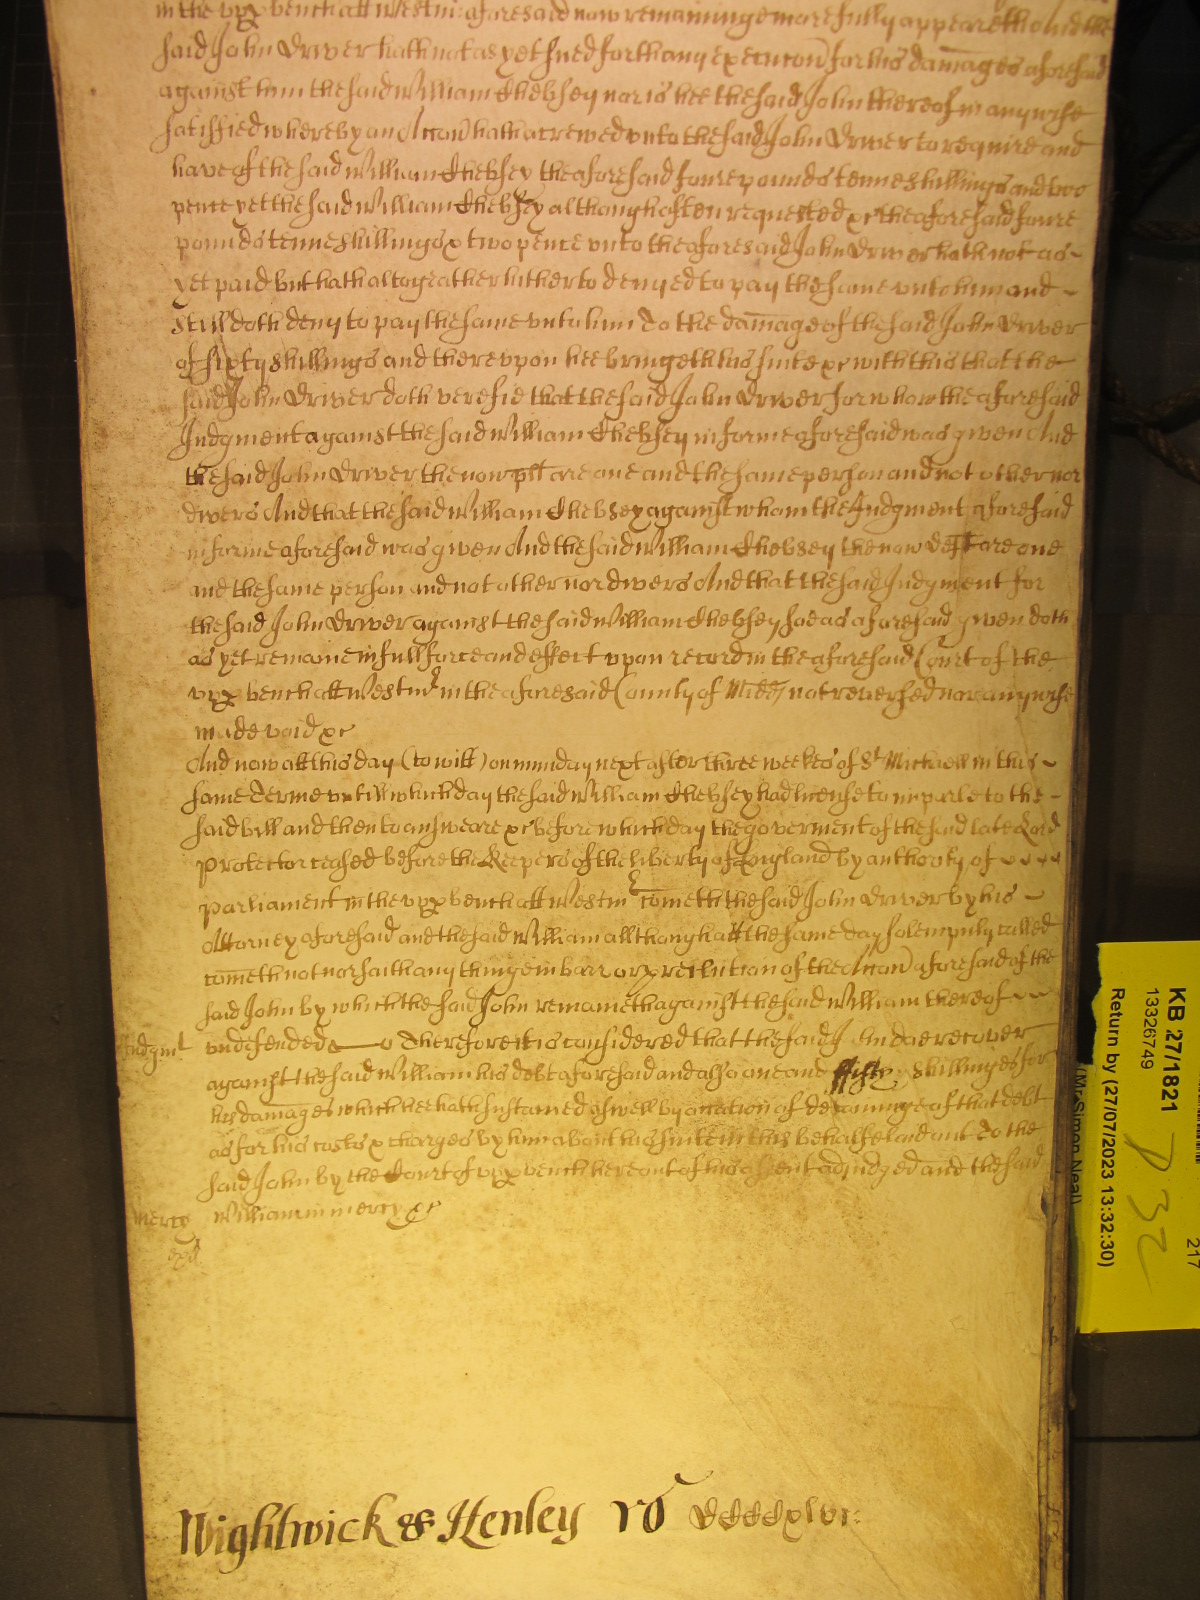 in the upp bench att Westm aforesaid now remaininge more fully appeareth And the
said John Driver hath not as yet sued forth any execucon for his damages aforesaid
against him the said William Chebsey nor is hee the said John thereof in any wise
satisfied whereby an Accon hath accrewed unto the said John Driver to require and
have of the said William Chebsey the aforesaid foure pounds tenne shillings and two
pence yet the said William Chebsey although often requested &c the aforesaid foure
pounds tenne shillings & two pence unto the aforesaid John Driver hath not as
yet paid but hath altogeather hitherto denyed to pay the same unto him and
still doth deny to pay the same unto him To the damage of the said John Driver
of sixty shillings and thereupon hee bringeth his suite &c with this that the
said John Driver doth verefie that the said John Driver for whom the aforesaid
Judgment against the said William Chebsey in forme aforesaid was given And
the said John Driver the now plt are one and the same person and not other nor
divers And that the said William Chebsey against whom the Judgment aforesaid
in forme aforesaid was given And the said William Chebsey the now deft are one
and the same person and not other nor divers And that the said Judgment for
the said John Driver against the said William Chebsey soe as aforesaid given doth
as yet remaine in full force and effect upon record in the aforesaid Court of the
upp bench att Westmr in the aforesaid County of Midd not reversed nor any wise
made void &c
And now att this day (to witt) on munday next after three weekes of St Michaell in this
same Terme untill which day the said William Chebsey had license to imparle to the
said bill and then to answeare &c before which day the goverment of the said late Lord
Protector ceased before the Keepers of the liberty of England by authority of
Parliament in the upp bench att Westm cometh the said John Driver by his
Attorney aforesaid and the said William allthough att the same day solempnly called
cometh not nor saith any thinge in barr or preclution of the Accon aforesaid of the
said John by which the said John remaineth against the said William thereof
Judgmt undefended Therefore it is considered that the said John doe recover
against the said William his debt aforesaid and also one and fifty shillinges for
his damages which hee hath sustained aswell by occation of detaininge of that debt
as for his costs & charges by him about his suite in this behalfe laid out To the
said John by the Court of upp bench here out of his assent adjudged and the said
mercy William in mercy &c
Wightwick & Henley ro CCCCxlvi
KB 27/1821
13326749
Return by (27/07/2023 13:32:30)
(Mr Simon Neal)
217
P 32